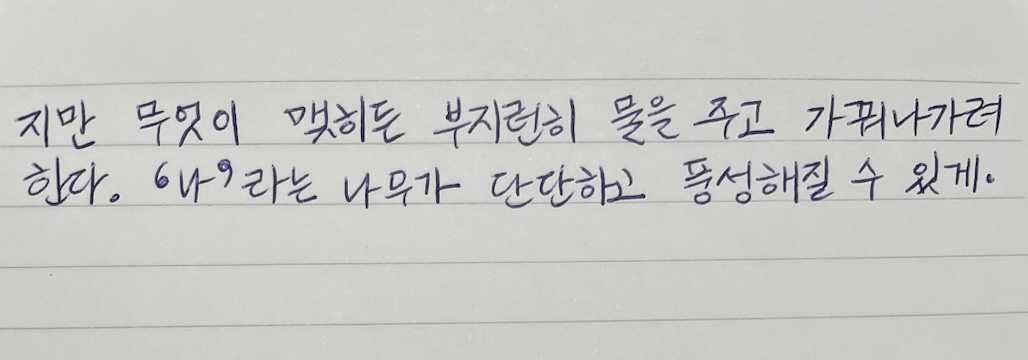 지만 무엇이 맺히든 부지런히 물을 주고 가꿔나가려
한다. ‘나’라는 나무가 단단하고 풍성해질 수 있게.